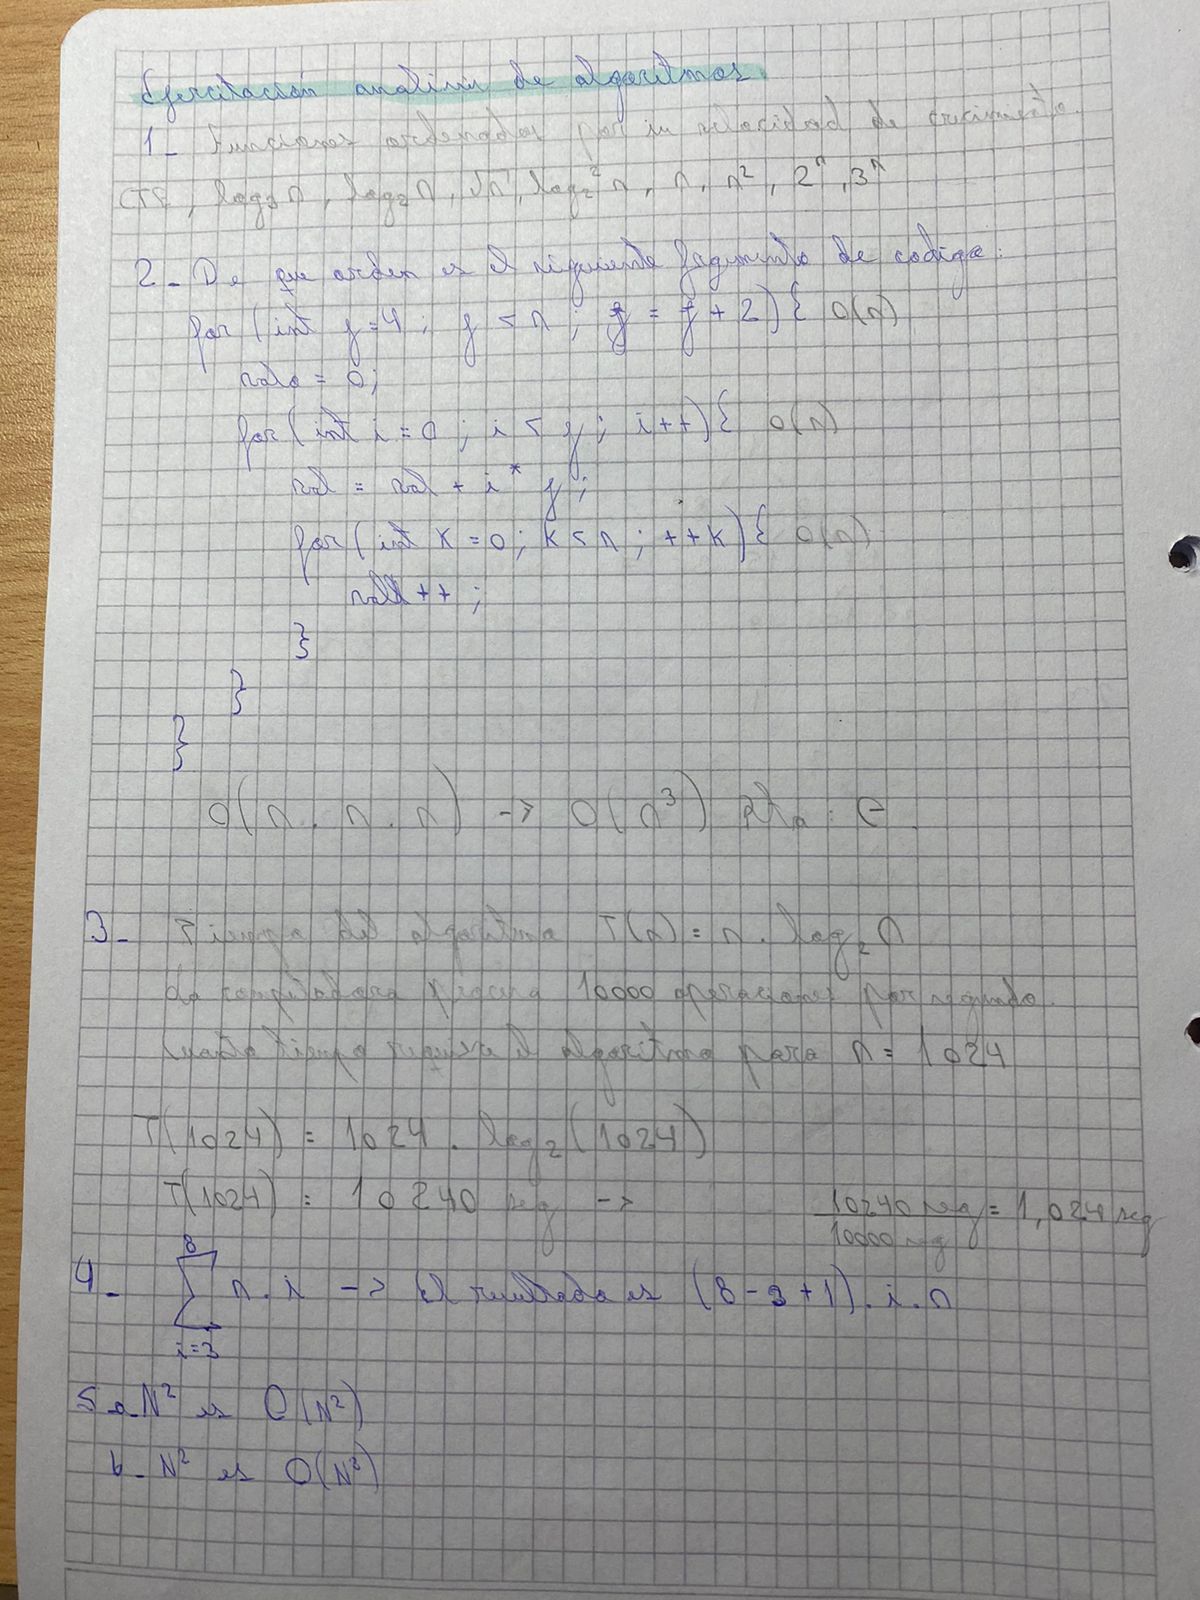 Ejercitación analisis de algoritmos.
1_ Funciones ordenadas por su velocidad de crecimiento.
CTE, log₃ n, log₂ n, √n, log₂² n, n, n², 2ⁿ, 3ⁿ
2_ De que orden es el siguiente fragmento de codigo:
for (int j=4; j<n; j = j+2){ O(n)
val = 0;
for (int i=0; i<j; i++){ O(n)
val = val + i * j;
for (int k=0; k<n; ++k){ O(n)
val++;
}
}
}
O(n . n . n) -> O(n³) Rta: C
3_ Tiempo del algoritmo T(n) = n . log₂ n
La computadora procesa 10000 operaciones por segundo.
Cuanto tiempo requiere el algoritmo para n = 1024
T(1024) = 1024 . log₂ (1024)
T(1024) = 10240 seg -> 10240 seg / 10000 seg = 1,024 seg
4_ 8 Σ i=3 n . i -> El resultado es (8-3+1) . i . n
5 a_ N² es O(N²)
b_ N² es O(N³)